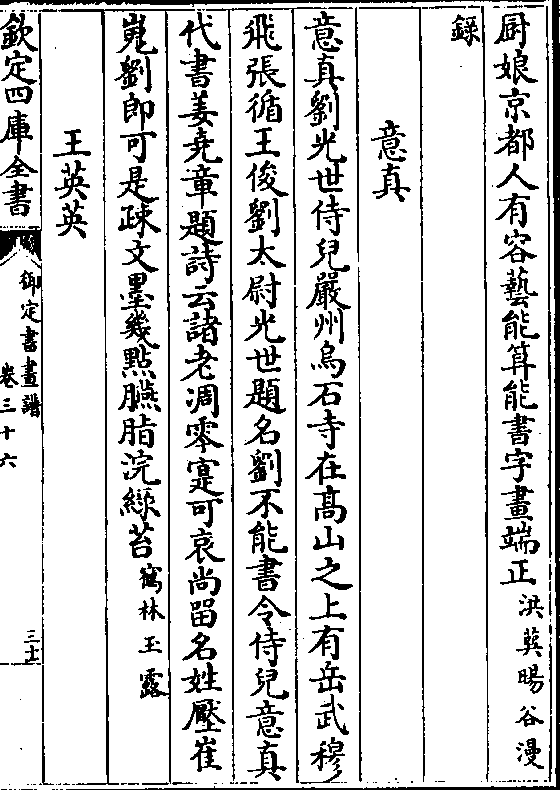 厨娘京都人有容藝能算能書字畫端正洪㢲暘谷漫
錄
意真
意真劉光世侍兒嚴州烏石寺在髙山之上有岳武穆
飛張循王俊劉太尉光世題名劉不能書令侍兒意真
代書姜堯章題詩云諸老凋零寔可哀尚留名姓壓崔
嵬劉郎可是疎文墨幾點臙脂浣緑苔鶴林玉露
王英英
欽定四庫全書
御定書畫譜
卷三十六
三十